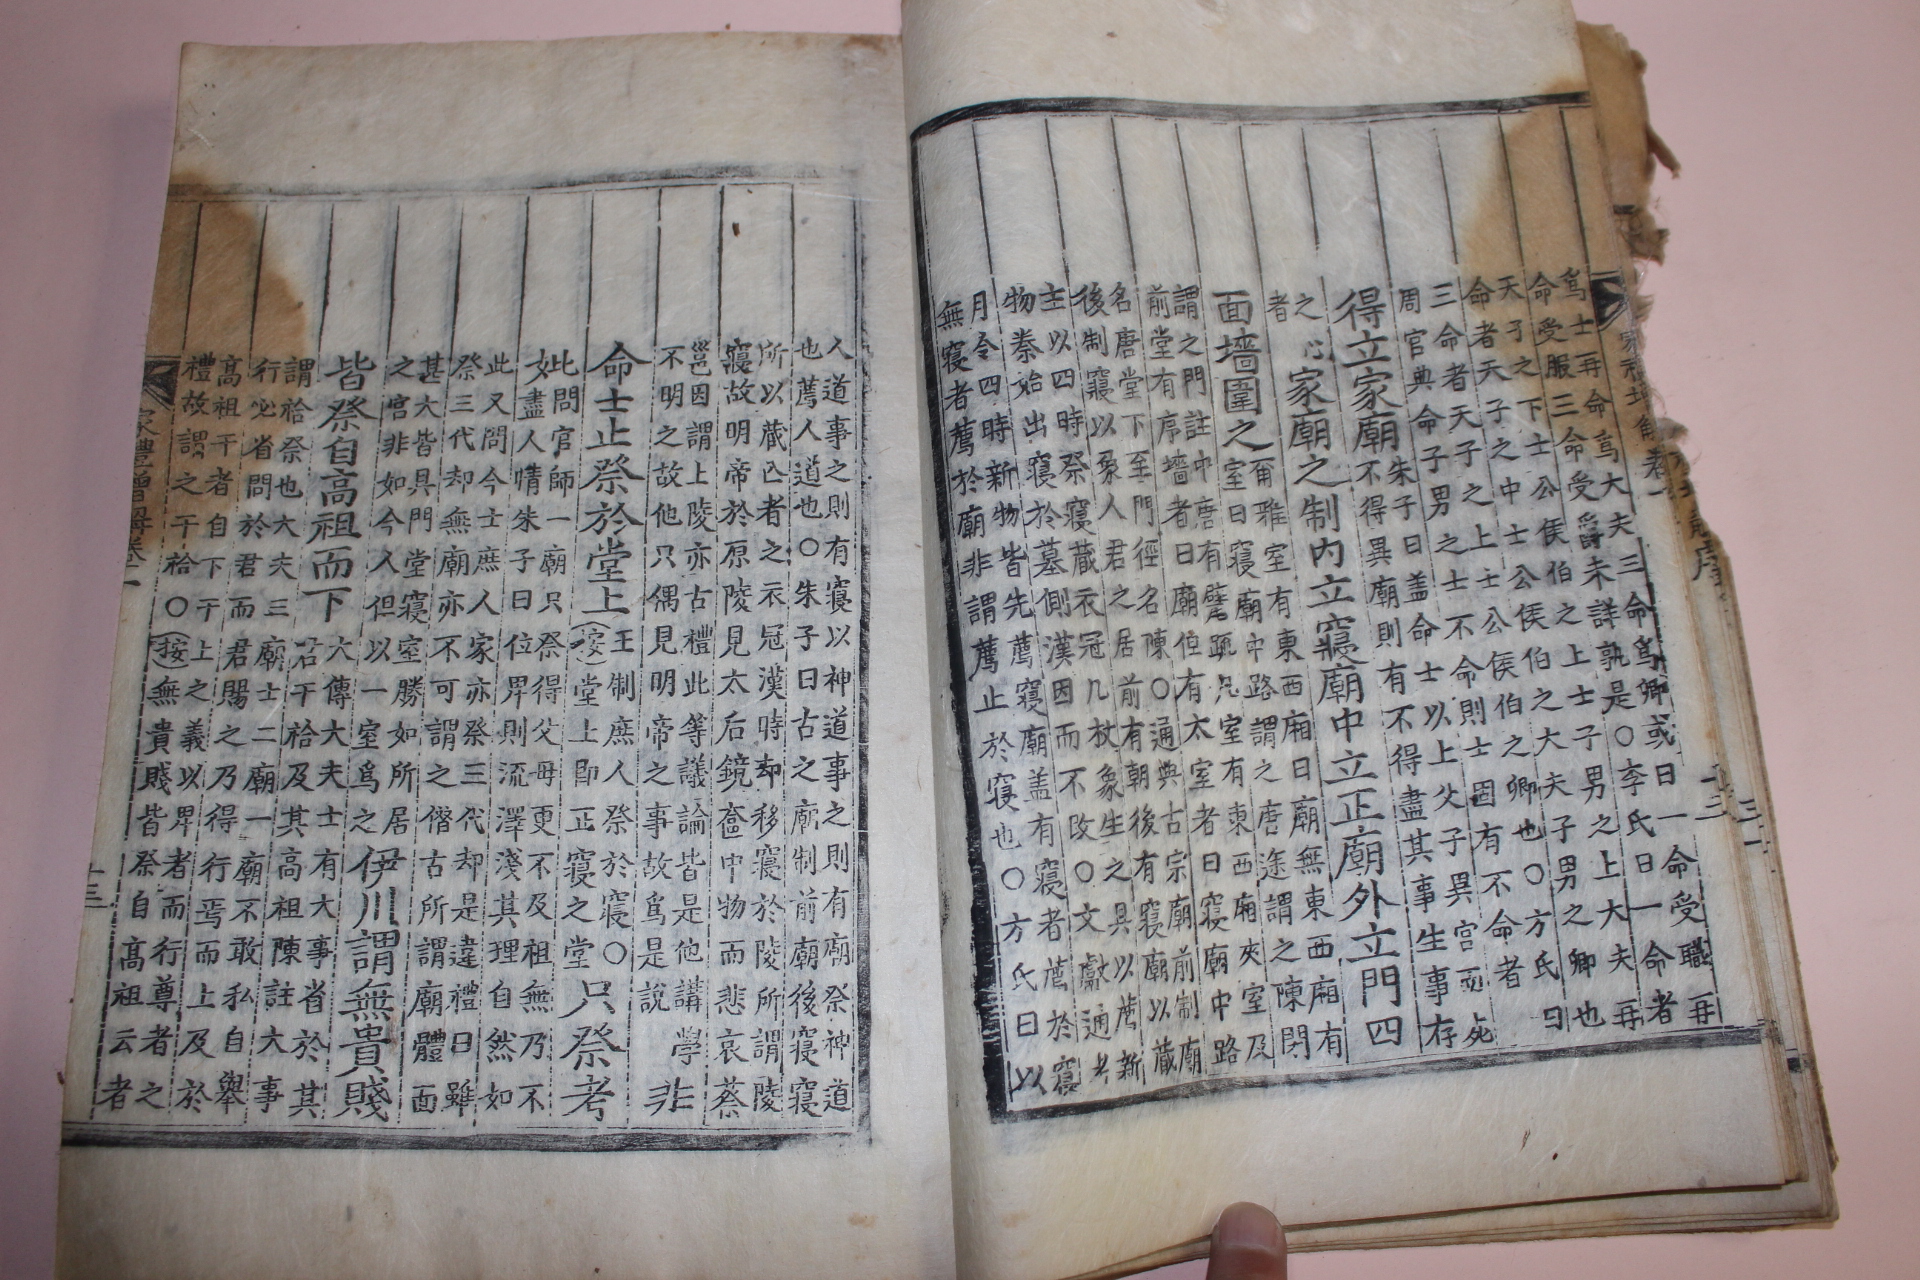 家禮增解卷一 十二
爲士再命爲大夫三命爲卿或曰一命受職再
命受服三命受爵未詳孰是○李氏曰一命者
天子之下士公侯伯之上士子男之上大夫再
命者天子之中士公侯伯之大夫子男之卿也
三命者天子之上士公侯伯之卿也○方氏曰
周官典命子男之士不命則士固有不命者
得立家廟 朱子曰盖命士以上父子異宮而死
不得異廟則有不得盡其事生事存
之心
者 家廟之制內立寢廟中立正廟外立門四
面墻圍之 爾雅室有東西廂曰廟無東西廂有
室曰寢廟中路謂之唐途謂之陳閍
謂之門註中唐有甓疏凡室有東西廂夾室及
前堂有序墻者曰廟但有太室者曰寢廟中路
名唐堂下至門徑名陳○通典古宗廟前制廟
後制寢以象人君之居前有朝後有寢廟以藏
主以四時祭寢藏衣冠几杖象生之具以薦新
物秦始出寢於墓側漢因而不改○文獻通考
月令四時新物皆先薦寢廟盖有寢者薦於寢
無寢者薦於廟非謂薦止於寢也○方氏曰以
人道事之則有寢以神道事之則有廟祭神道
也薦人道也○朱子曰古之廟制前廟後寢寢
所以藏亡者之衣冠漢時却移寢於陵所謂陵
寢故明帝於原陵見太后鏡奩中物而悲哀蔡
邕因謂上陵亦古禮此等議論皆是他講學
不明之故他只偶見明帝之事故爲是說 非
命士止祭於堂上 按王制庶人祭於寢○
堂上卽正寢之堂 只祭考
妣 問官師一廟只祭得父母更不及祖無乃不
盡人情朱子曰位卑則流澤淺其理自然如
此又問今士庶人家亦祭三代却是違禮曰雖
祭三代却無廟亦不可謂之僭古所謂廟體面
甚大皆具門堂寢室勝如所居
之宮非如今人但以一室爲之 伊川謂無貴賤
皆祭自高祖而下 大傳大夫士有大事省於其
君干祫及其高祖陳註大事
謂祫祭也大夫三廟士二廟一廟不敢私自擧
行必省問於君而君賜之乃得行焉而上及於
高祖干者自下干上之義以卑者而行尊者之
禮故謂之干祫○按無貴賤皆祭自高祖云者
家禮增解卷一 十三